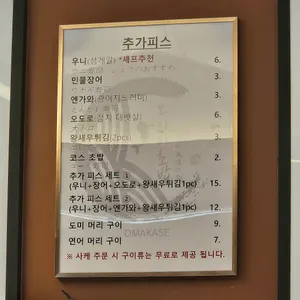 추가피스
우니(성게알) *셰프추천 6.
민물장어 3.
엔가와(광어지느러미) 3.
오도로(참치 대뱃살) 6.
왕새우튀김(2pc) 3.
코스 초밥 2.
추가 피스 세트 ①
(우니+장어+오도로+왕새우튀김1pc) 15.
추가 피스 세트 ②
(우니+장어+엔가와+왕새우튀김1pc) 12.
도미 머리 구이 9.
연어 머리 구이 7.
OMAKASE
※ 사케 주문 시 구이류는 무료로 제공 됩니다.